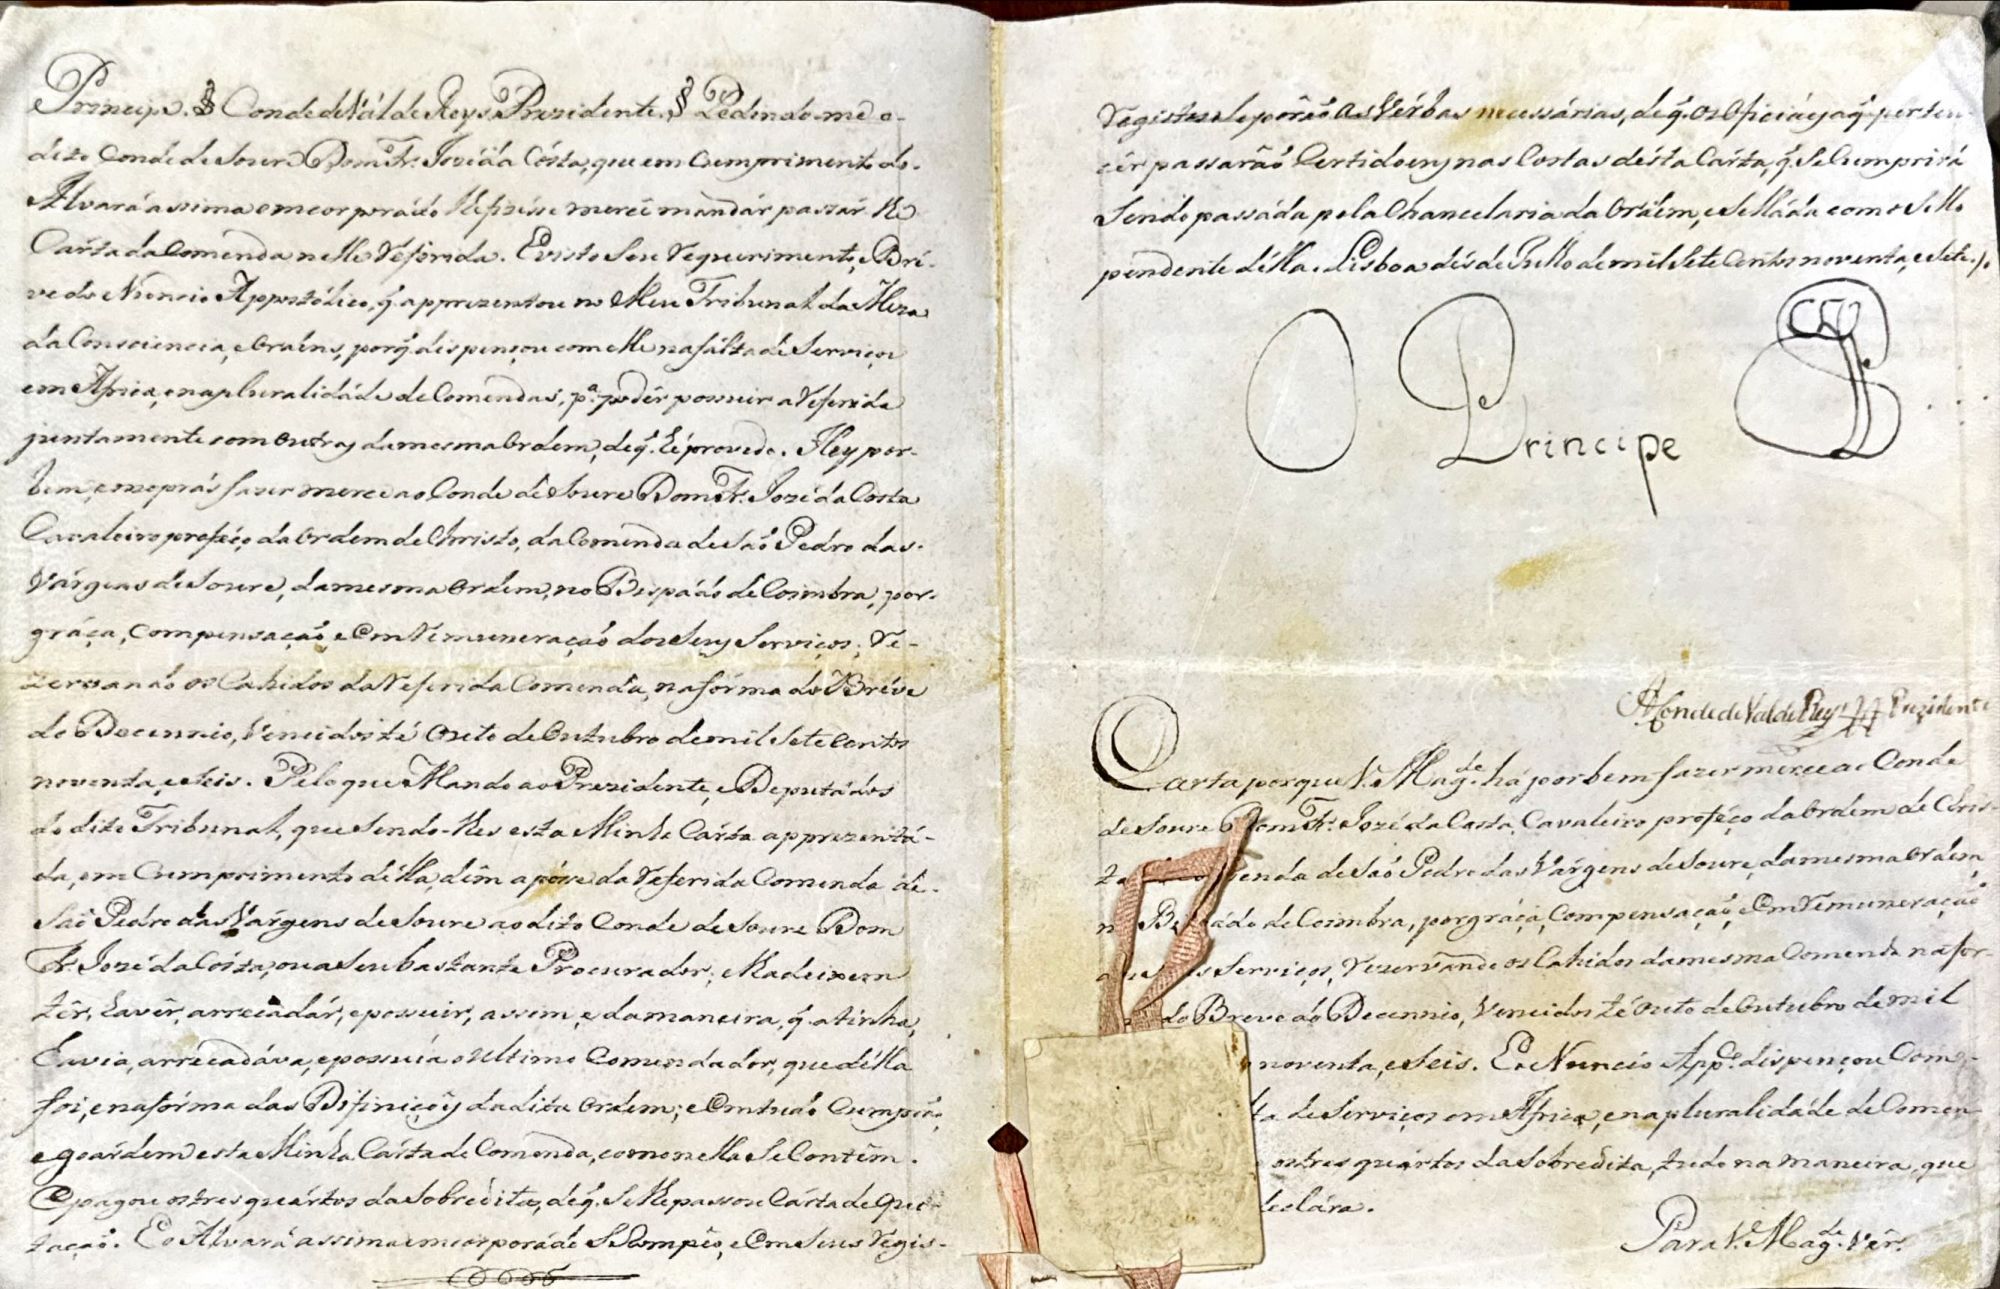 Principe. § Conde de Vál de Reys Prezidente. § Pedindo-me o-
dito Conde de Soure Dom Fr. Jozé da Cósta, que em Cumprimento do-
Alvará assima emcorporádo lhe fizésse mercê mandár passár lhe
Cárta da Comenda nelle referida. E visto seu requerimento, e Bré-
ve do Nuncio Appostólico, q̃ apprezentou no Meu Tribunal da Meza
da Consciencia, e Ordens, porq̃ dispençou com elle na fálta de Serviços
em Africa, e na pluralidáde de Comendas, p.ª podêr possuir a referida
juntamente com outras da mesma Ordem, de q̃ hé provedo. Hey por-
bem, e me prás fazer merce ao Conde de Soure Dom Fr. Jozé da Costa
Cavaleiro proféço da Ordem de Christo, da Comenda de São Pedro das-
Várgeas de Soure, da mesma Ordem, no Bispádo de Coimbra, por-
gráça, Compensação, e Em remuneração dos seus Serviços; re-
zervando os Cahidos da referida Comenda, na fórma do Bréve
do Decennio, Vencidos té Outo de Outubro de mil Sete Centos
noventa, e seis. Pelo que Mando ao Prezidente, e Deputádos
do dito Tribunal, que sendo-lhes esta Minha Cárta apprezentá-
da, em Cumprimento délla, dêm a pósse da referida Comenda de-
São Pedro das Várgens de Soure ao dito Conde de Soure Dom
Fr. Jozé da Cósta, ou a seu bastante Procurador; e lha deixem
têr, havêr, arrecadár, e possuir, assim, e da maneira, q̃ a tinha,
havia, arrecadáva, e possuía o ultimo Comendador, que délla
foi, e na fórma das Difiniçoys da dita Ordem; e Em tudo Cumprão,
e goardem esta Minha Cárta de Comenda, como nella se Contêm.
E pagou os tres quártos da Sobredita, de q̃ se lhe passou Cárta de Qui-
tação. E o Alvará assima emcorporádo se Rompêo, e Em seus regis-
registos se porão as Vérbas necessárias, de q̃ os Oficiáys a q̃ perten-
cêr passarão Certidoens nas Costas désta Cárta, q̃ se Cumprirá
sendo passáda pela Chancelaria da Ordem, e selláda com o Sello
pendente délla. Lisboa dés de Julho de mil Sete Centos noventa, e sete.
O Principe
O Conde de Val de Reys Prezidente
Carta porque V. Mag.de há por bem fazer merce ao Conde
de Soure Dom Fr. Jozé da Costa, Cavaleiro proféço da Ordem de Chris-
to enda de São Pedro das Várgens de Soure, da mesma Ordem,
n Bispádo de Coimbra, por gráça, Compensação, e Em remuneração
Serviços, rezervando os Cahidos da mesma Comenda na for-
do Breve do Decennio, Vencidos té Outo de Outubro de mil
noventa, e seis. E o Nuncio App.º dispençou Com-
ta de Serviços em Africa, e na pluralidáde de Comen-
os tres quártos da Sobredita, tudo na maneira, que
declára.
Para V. Mag.de Vêr.